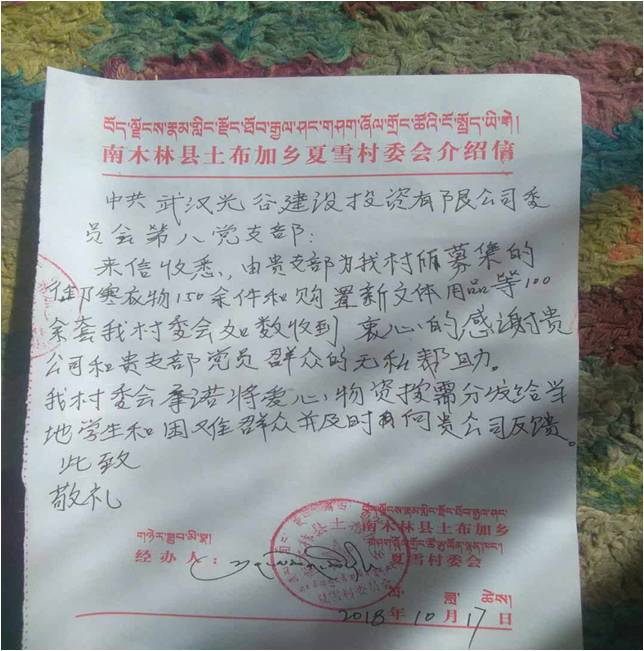 བོད་ལྗོངས་རྣམ་གླིང་རྫོང་ཐོབ་རྒྱལ་ཤང་གཤག་ཞོལ་གྲོང་ཚོའི་ངོ་སྤྲོད་ཡི་གེ།
南木林县土布加乡夏雪村委会介绍信
中共武汉光谷建设投资有限公司委
员会第八党支部:
来信收悉,由贵支部为我村所募集的
御寒衣物150余件和购置新文体用品等100
余套我村委会如数收到 衷心的感谢贵
公司和贵支部党员群众的无私帮助。
我村委会承诺将爱心物资按需分发给当
地学生和困难群众并及时向贵公司反馈。
此致
敬礼
南木林县土布加乡
经办人:
夏雪村委会
夏雪村委员会
2018年10月17日